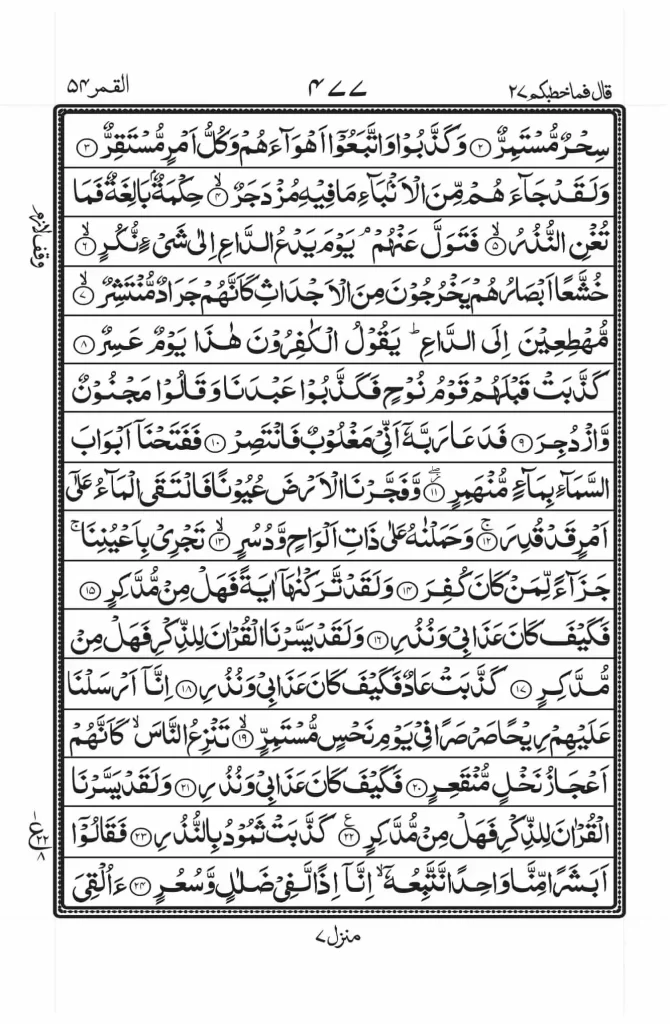 قال فما خطبكم ٢٧ ٤٧٧ القمر ٥٤
سِحْرٌ مُّسْتَمِرٌّ ﴿٢﴾ وَكَذَّبُوْا وَاتَّبَعُوْٓا اَهْوَآءَهُمْ وَكُلُّ اَمْرٍ مُّسْتَقِرٌّ ﴿٣﴾
وَلَقَدْ جَآءَهُمْ مِّنَ الْاَنْۢبَآءِ مَا فِيْهِ مُزْدَجَرٌ ۙ﴿٤﴾ حِكْمَةٌۢ بَالِغَةٌ فَمَا
تُغْنِ النُّذُرُ ۙ﴿٥﴾ فَتَوَلَّ عَنْهُمْ ۘ يَوْمَ يَدْعُ الدَّاعِ اِلٰى شَىْءٍ نُّكُرٍ ۙ﴿٦﴾
وقف لازم
خُشَّعًا اَبْصَارُهُمْ يَخْرُجُوْنَ مِنَ الْاَجْدَاثِ كَاَنَّهُمْ جَرَادٌ مُّنْتَشِرٌ ۙ﴿٧﴾
مُّهْطِعِيْنَ اِلَى الدَّاعِ ؕ يَقُوْلُ الْكٰفِرُوْنَ هٰذَا يَوْمٌ عَسِرٌ ﴿٨﴾
كَذَّبَتْ قَبْلَهُمْ قَوْمُ نُوْحٍ فَكَذَّبُوْا عَبْدَنَا وَقَالُوْا مَجْنُوْنٌ
وَّازْدُجِرَ ﴿٩﴾ فَدَعَا رَبَّهٗٓ اَنِّىْ مَغْلُوْبٌ فَانْتَصِرْ ﴿١٠﴾ فَفَتَحْنَآ اَبْوَابَ
السَّمَآءِ بِمَآءٍ مُّنْهَمِرٍ ۖ﴿١١﴾ وَّفَجَّرْنَا الْاَرْضَ عُيُوْنًا فَالْتَقَى الْمَآءُ عَلٰٓى
اَمْرٍ قَدْ قُدِرَ ۚ﴿١٢﴾ وَحَمَلْنٰهُ عَلٰى ذَاتِ اَلْوَاحٍ وَّدُسُرٍ ۙ﴿١٣﴾ تَجْرِىْ بِاَعْيُنِنَا ۚ
جَزَآءً لِّمَنْ كَانَ كُفِرَ ﴿١٤﴾ وَلَقَدْ تَّرَكْنٰهَآ اٰيَةً فَهَلْ مِنْ مُّدَّكِرٍ ﴿١٥﴾
فَكَيْفَ كَانَ عَذَابِىْ وَنُذُرِ ﴿١٦﴾ وَلَقَدْ يَسَّرْنَا الْقُرْاٰنَ لِلذِّكْرِ فَهَلْ مِنْ
مُّدَّكِرٍ ﴿١٧﴾ كَذَّبَتْ عَادٌ فَكَيْفَ كَانَ عَذَابِىْ وَنُذُرِ ﴿١٨﴾ اِنَّآ اَرْسَلْنَا
عَلَيْهِمْ رِيْحًا صَرْصَرًا فِىْ يَوْمِ نَحْسٍ مُّسْتَمِرٍّ ۙ﴿١٩﴾ تَنْزِعُ النَّاسَ ۙ كَاَنَّهُمْ
اَعْجَازُ نَخْلٍ مُّنْقَعِرٍ ﴿٢٠﴾ فَكَيْفَ كَانَ عَذَابِىْ وَنُذُرِ ﴿٢١﴾ وَلَقَدْ يَسَّرْنَا
الْقُرْاٰنَ لِلذِّكْرِ فَهَلْ مِنْ مُّدَّكِرٍ ﴿٢٢﴾ كَذَّبَتْ ثَمُوْدُ بِالنُّذُرِ ﴿٢٣﴾ فَقَالُوْٓا
ع ٢٢ ٨
اَبَشَرًا مِّنَّا وَاحِدًا نَّتَّبِعُهٗٓ ۙ اِنَّآ اِذًا لَّفِىْ ضَلٰلٍ وَّسُعُرٍ ﴿٢٤﴾ ءَاُلْقِىَ
منزل ٧